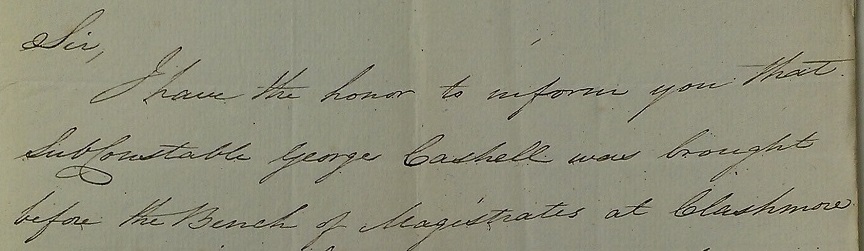 Sir,
I have the honor to inform you that
SubConstable George Cashell was brought
before the Bench of Magistrates at Clashmore